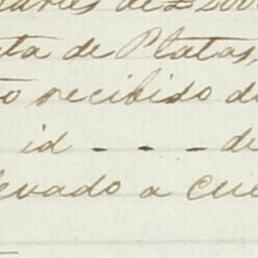 de £ 200
ta de Platas,
o recibido d
id - - - de
levado a cue